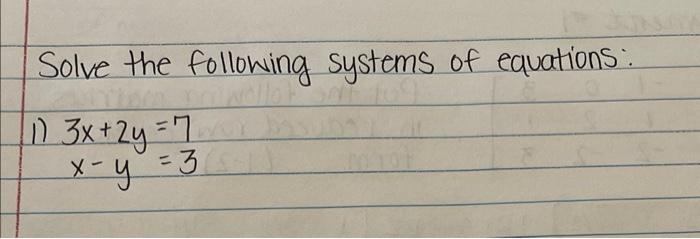 Solve the following systems of equations:
1) 3x+2y=7
x-y =3